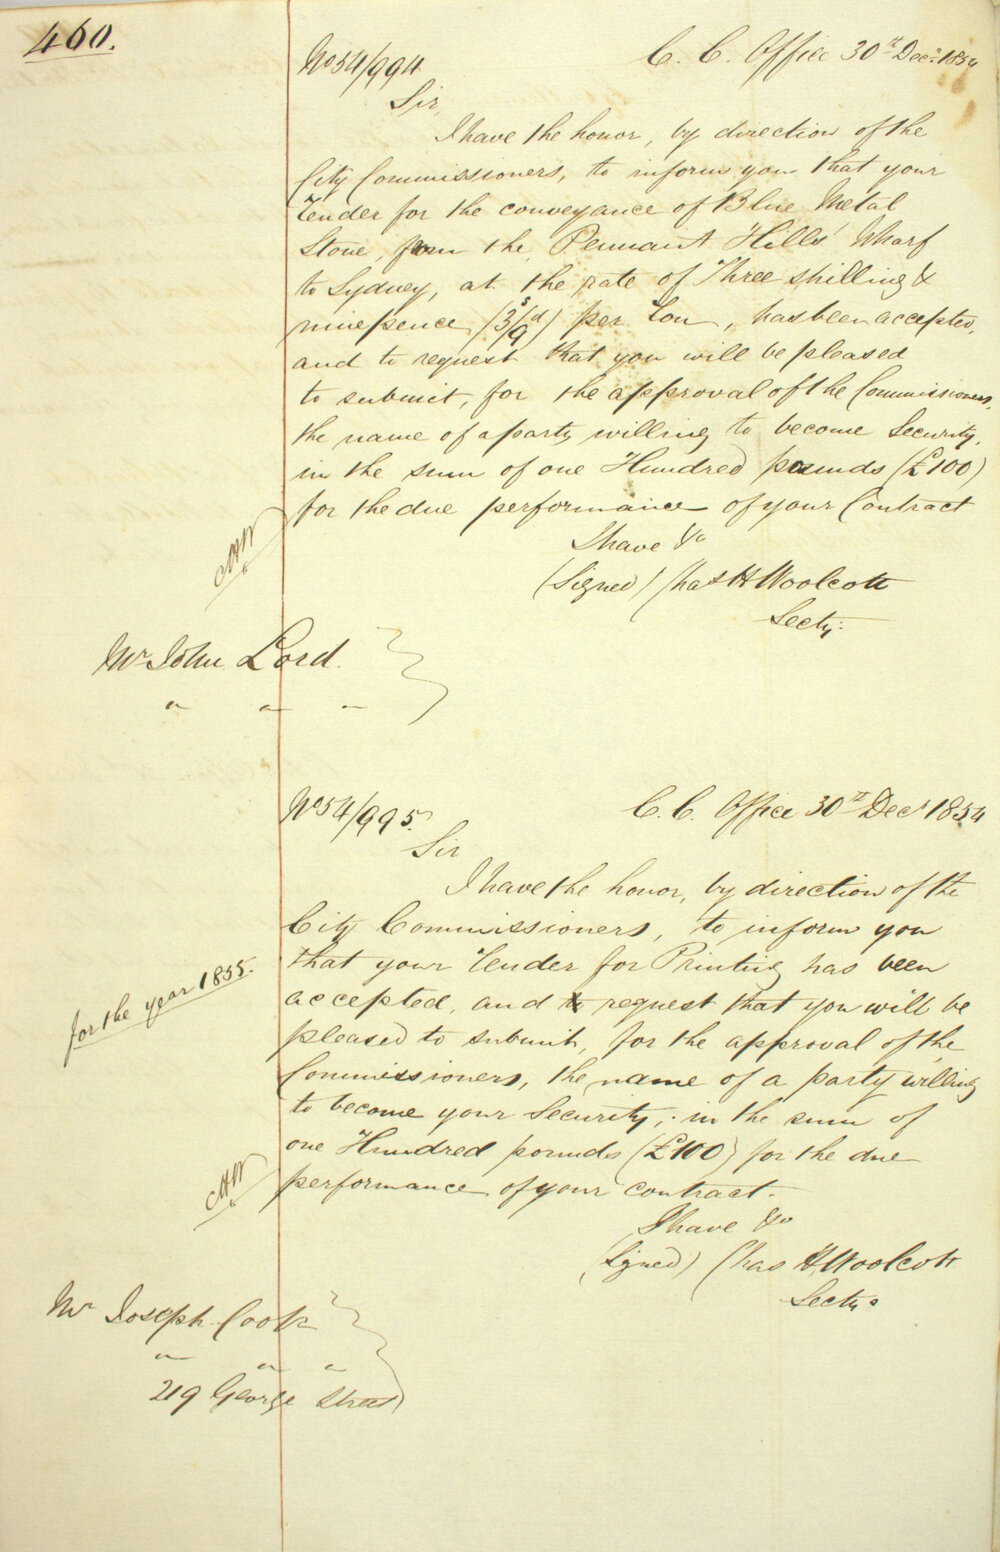 460.
No 54/994
C. C. Office 30th Decr 1854
Sir,
I have the honor, by direction of the
City Commissioners, to inform you that your
Tender for the conveyance of Blue Metal
Stone, from the Pennant Hills' Wharf
to Sydney, at the rate of Three shilling &
ninepence (3s/9d) per Ton, has been accepted,
and to request that you will be pleased
to submit, for the approval of the Commissioners,
the name of a party willing to become Security,
in the sum of one Hundred pounds (£100)
for the due performance of your Contract
I have &c
(Signed) Chas H Woolcott
Secty:
CHW
Mr John Lord.
" " "
No 54/995.
C. C. Office 30th Decr 1854
Sir
I have the honor, by direction of the
City Commissioners, to inform you
that your Tender for Printing has been
for the year 1855.
accepted, and to request that you will be
pleased to submit, for the approval of the
Commissioners, the name of a party willing
to become your Security; in the sum of
one Hundred pounds (£100) for the due
performance of your contract.
CHW
I have &c
(Signed) Chas H. Woolcott
Secty.
Mr Joseph Cook
" " "
219 George Street